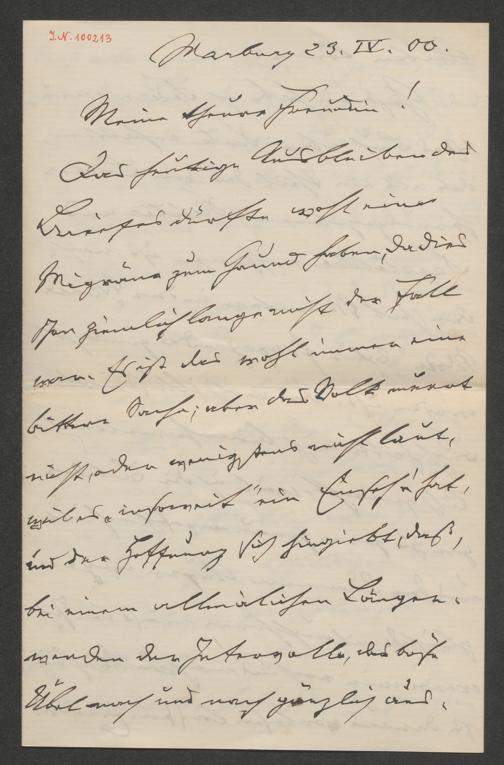 J.N. 100213
Marburg 23. IV. 00.
Meine theure Freundin!
Das heutige Ausbleiben des
Briefes dürfte wohl eine
Migräne zum Grund haben, da dies
schon ziemlich lange nicht der Fall
war. Es ist das wohl immer eine
bittere Sache; aber das Volk murrt
nicht, oder wenigstens nicht laut,
weil es „insoweit" ein Einseh'n hat,
und der Hoffnung sich hingiebt, daß,
bei einem allmälichen Länger-
werden der Intervalle, das böse
Übel nach und nach gänzlich aus-